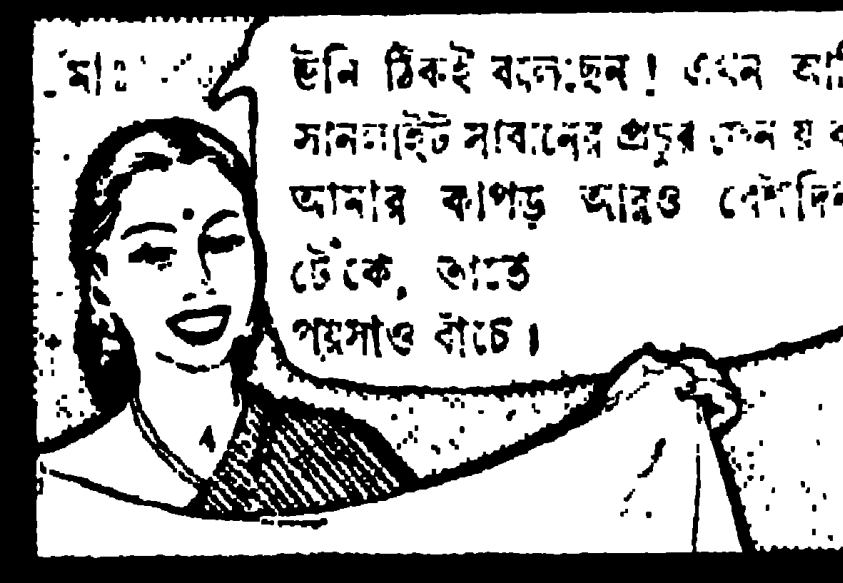 মাঃ
উনি ঠিকই বলেছেন! এখন আমি
সানলাইট সাবানের প্রচুর ফেনায়
আমার কাপড় আরও বেশীদিন
টেঁকে, তাতে
পয়সাও বাঁচে।